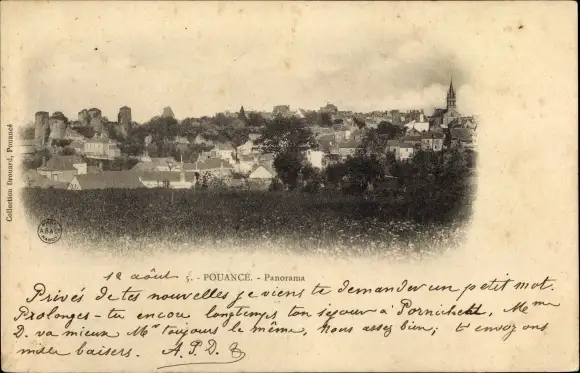 Collection Drouard, Pouancé
ABAC
12 août 5. - POUANCÉ. - Panorama
Privés de tes nouvelles je viens te demander un petit mot.
Prolonges-tu encore longtemps ton séjour à Pornichet, Mme
D. va mieux Mr toujours le même, nous assez bien; t'envoyons
mille baisers. A.P.D.